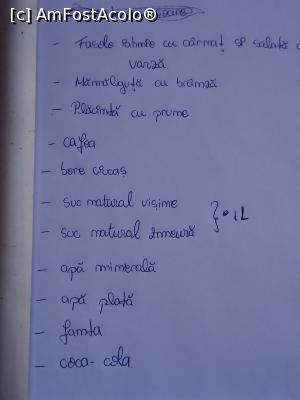 [c] AmFostAcolo®
- Fasole rahnie cu cârnaț și salată d
varză
- Mămăliguță cu brânză
- Plăcintă cu prune
- cafea
- bere ciucaș
- suc natural vișine
- suc natural zmeură } 1L
- apă minerală
- apă plată
- fanta
- coca-cola.